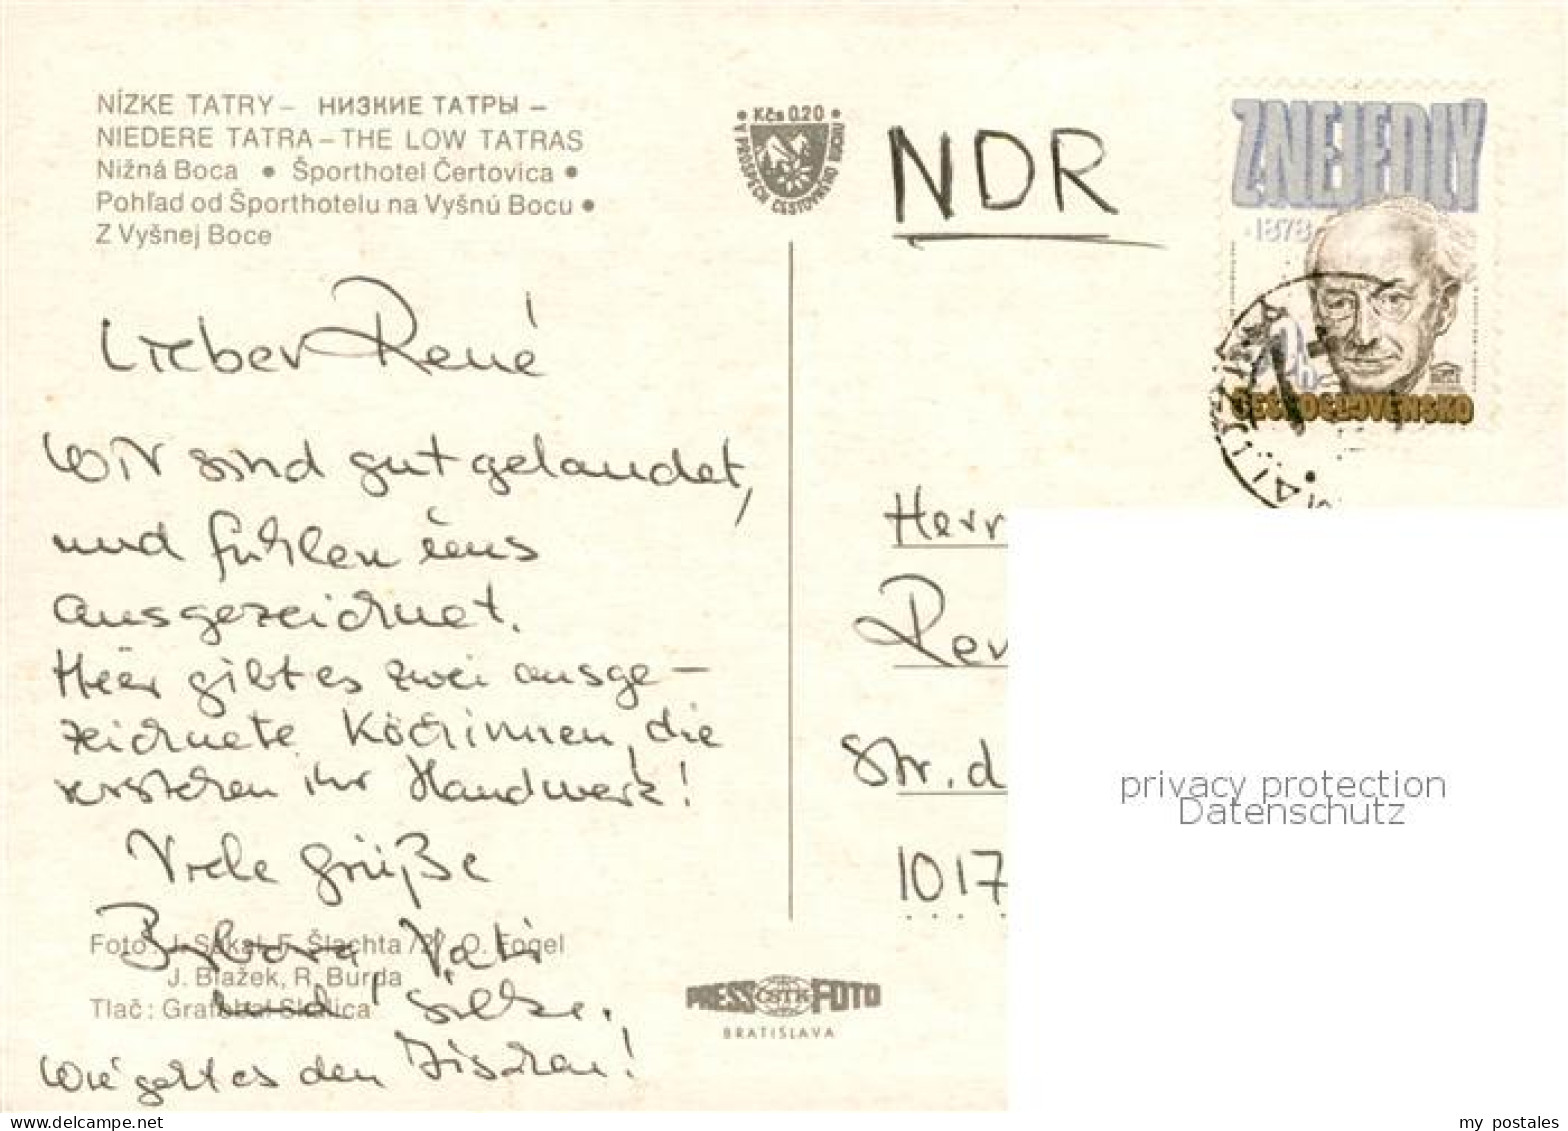 NÍZKE TATRY – НИЗКИЕ ТАТРЫ –
NIEDERE TATRA – THE LOW TATRAS
Nižná Boca • Športhotel Čertovica •
Pohľad od Športhotelu na Vyšnú Bocu •
Z Vyšnej Boce
Kčs 0,20
V PROSPECH CESTOVNÉHO RUCHU
NDR
Z NEJEDLÝ
1878
ČESKOSLOVENSKO
Lieber René
Wir sind gut gelandet,
und fühlen uns
ausgezeichnet.
Hier gibt es zwei ausge-
zeichnete Köchinnen, die
verstehen ihr Handwerk!
Viele Grüße
Vati
und Silke.
Wie geht es den Fischen!
Foto: J. Sokal, F. Šlachta /2/, O. Fogel
J. Blažek, R. Burda
Tlač: Grafobal Skalica
PRESS ČSTK FOTO
BRATISLAVA
Herr
Ren
Str. d
1017
privacy protection
Datenschutz
www.delcampe.net
my_postales